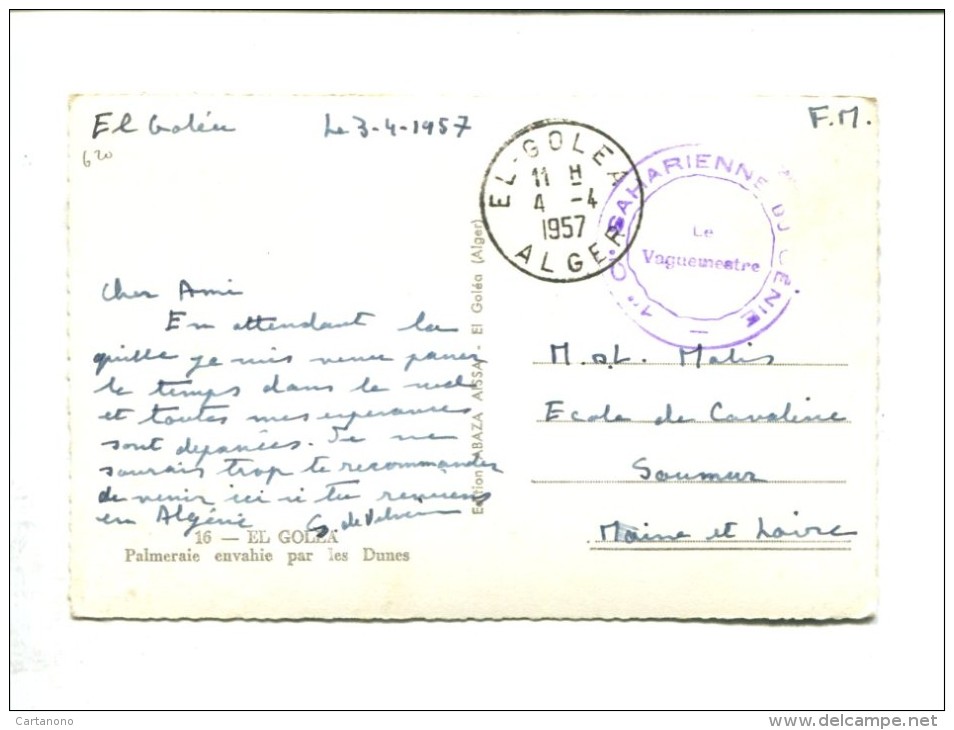 El Goléa Le 3-4-1957
F.M.
620
EL-GOLEA
11 H
4 -4
1957
ALGER
1re Cie SAHARIENNE DU GÉNIE
Le
Vaguemestre
Cher Ami
En attendant la
quille je suis venu passer
le temps dans le sud
et toutes mes espérances
sont dépassées. Je ne
saurais trop te recommander
de venir ici si tu reviens
en Algérie
Edition ABAZA AISSA - El Goléa (Alger)
16 — EL GOLÉA
Palmeraie envahie par les Dunes
Ecole de Cavalerie
Saumur
Maine et Loire
Cartanono
www.delcampe.net